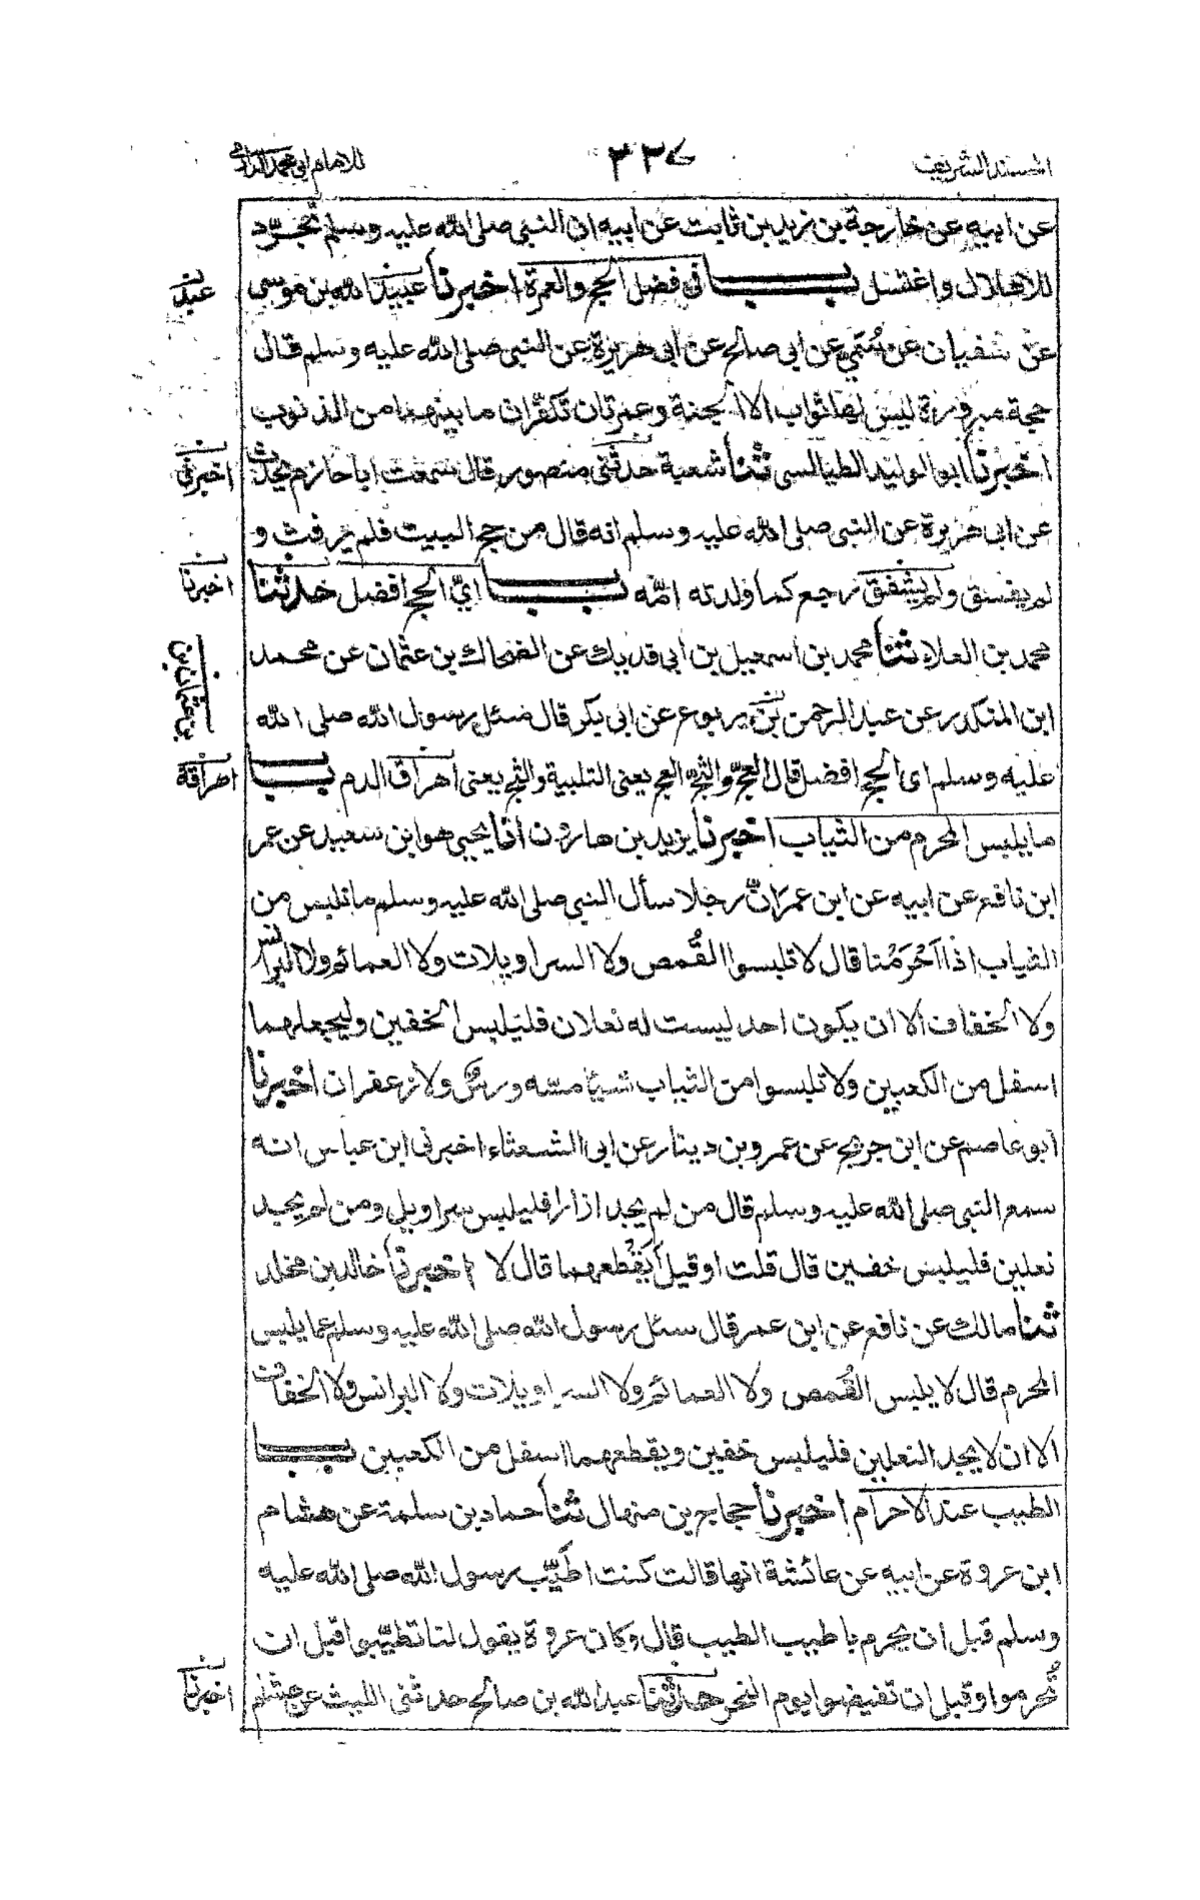 المسند الشريف ٣٢٧ للامام ابي محمد الدارمي
عن ابيه عن خارجة بن زيد بن ثابت عن ابيه ان النبي صلى الله عليه وسلم تجرد
للاهلال واغتسل باب في فضل الحج والعمرة اخبرنا عبيد الله بن موسى
عبد
عن سفيان عن سُمَيّ عن ابي صالح عن ابي هريرة عن النبي صلى الله عليه وسلم قال
حجة مبرورة ليس لها ثواب الا الجنة وعمرتان تكفّران ما بينهما من الذنوب
اخبرنا ابو الوليد الطيالسي ثنا شعبة حدثني منصور قال سمعت ابا حازم يحدث
اخبرني
عن ابي هريرة عن النبي صلى الله عليه وسلم انه قال من حج البيت فلم يرفث و
لم يفسق رجع كما ولدته امّه باب ايّ الحج افضل حدثنا
اخبرنا
محمد بن العلاء ثنا محمد بن اسمعيل بن ابي فديك عن الضحاك بن عثمان عن محمد
بن عثمان بن
ابن المنكدر عن عبد الرحمن بن يربوع عن ابي بكر قال سئل رسول الله صلى الله
عليه وسلم اى الحج افضل قال العجّ والثجّ العج يعنى التلبية والثج يعنى اهراق الدم باب
اهراقة
ما يلبس المحرم من الثياب اخبرنا يزيد بن هارون انا يحيى هو ابن سعيد عن عمر
ابن نافع عن ابيه عن ابن عمر انّ رجلا سأل النبي صلى الله عليه وسلم ما نلبس من
الثياب اذا اَحْرَمْنا قال لا تلبسوا القُمص ولا السراويلات ولا العمائم ولا البرانس
ولا الخفاف الا ان يكون احد ليست له نعلان فليلبس الخفين وليجعلهما
اسفل من الكعبين ولا تلبسوا من الثياب شيئا مسّه ورسٌ ولا زعفران اخبرنا
ابو عاصم عن ابن جريج عن عمرو بن دينار عن ابى الشعثاء اخبرنى ابن عباس انه
سمع النبى صلى الله عليه وسلم قال من لم يجد ازارا فليلبس سراويل ومن لم يجد
نعلين فليلبس خفين قال قلت او قيل اَيَقْطعهما قال لا اخبرنا خالد بن مخلد
ثنا مالك عن نافع عن ابن عمر قال سئل رسول الله صلى الله عليه وسلم عما يلبس
المحرم قال لا يلبس القُمص ولا العمائم ولا السراويلات ولا البرانس ولا الخفاف
الا ان لا يجد النعلين فليلبس خفين ويقطعهما اسفل من الكعبين باب
الطيب عند الاحرام اخبرنا حجاج بن منهال ثنا حماد بن سلمة عن هشام
ابن عروة عن ابيه عن عائشة انها قالت كنت اطيّب رسول الله صلى الله عليه
وسلم قبل ان يحرم باطيب الطيب قال وكان عروة يقول لنا تطيّبوا قبل ان
تُحرموا وقبل ان تفيضوا يوم النحر حدثنا عبد الله بن صالح حدثنى الليث عن هشام
اخبرنا